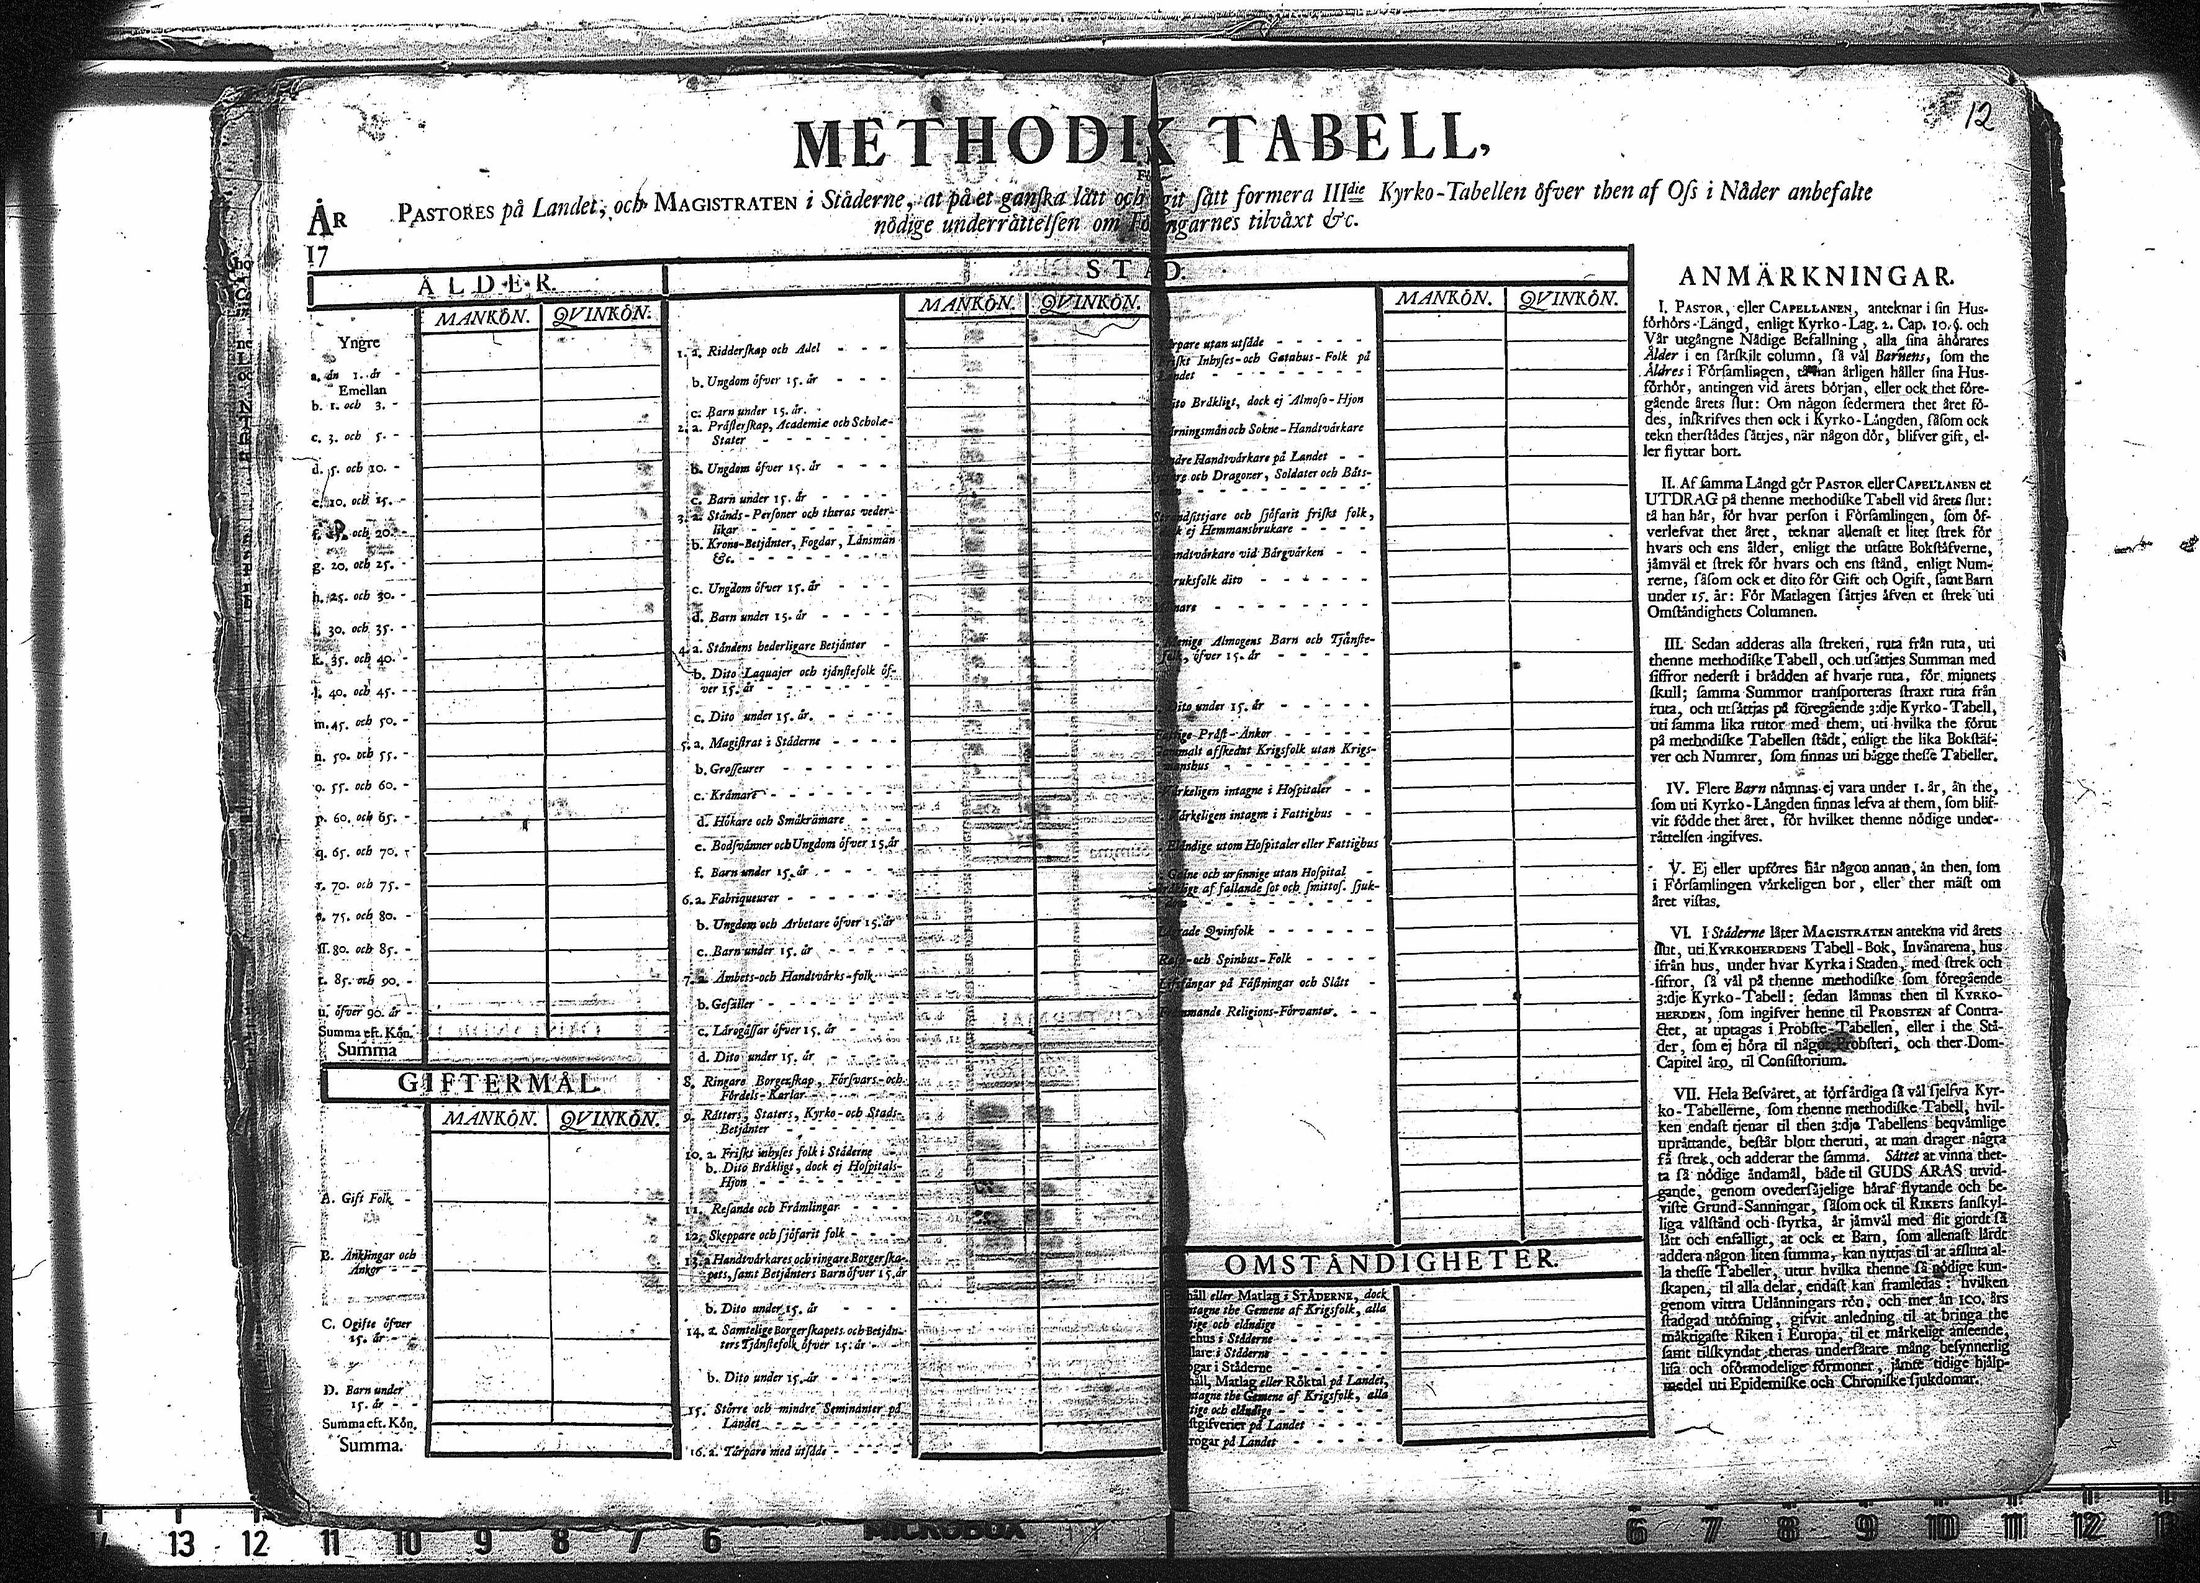 12
METHODIK TABELL,
PASTORES på Landet, och MAGISTRATEN i Städerne, at på et ganska lätt och git sått formera IIIdie Kyrko-Tabellen öfver then af Oss i Nåder anbefalte
nödige underråttelsen om ngarnes tilvåxt &c.
ÅR
17
ÅLDER.
MANKÖN. QVINKÖN.
Yngre
a. än 1. år -
Emellan
b. 1. och 3. -
c. 3. och 5. -
d. 5. och 10. -
e. 10. och 15. -
f. och 20. -
g. 20. och 25. -
h. 25. och 30. -
i. 30. och 35. -
k. 35. och 40. -
l. 40. och 45. -
m. 45. och 50. -
n. 50. och 55. -
o. 55. och 60. -
p. 60. och 65. -
q. 65. och 70. -
r. 70. och 75. -
s. 75. och 80. -
ss. 80. och 85. -
t. 85. och 90. -
u. öfver 90. år -
Summa eft. Kön.
Summa
GIFTERMÅL.
MANKÖN. QVINKÖN.
A. Gift Folk -
B. Änklingar och
Änkor - -
C. Ogifte öfver
15. år - -
D. Barn under
15. år - -
Summa eft. Kön.
Summa.
STÅD.
MANKÖN. QVINKÖN.
1. a. Ridderskap och Adel - - -
b. Ungdom öfver 15. år - - -
c. Barn under 15. år. - - -
2. a. Prästerskap, Academiæ och Scholæ-
Stater - - - - - -
b. Ungdom öfver 15. år - - -
c. Barn under 15. år - - - -
3. a. Stånds-Personer och theras veder-
likar - - - - - -
b. Krono-Betjänter, Fogdar, Länsmän
&c. - - - - - -
c. Ungdom öfver 15. år - - -
d. Barn under 15. år - - - -
4. a. Ståndens hederligare Betjänter -
b. Dito Laquajer och tjänstefolk öf-
ver 15. år - - - - - -
c. Dito under 15. år. - - - -
5. a. Magistrat i Städerne - - - -
b. Grosseurer - - - - - -
c. Krämare - - - - - -
d. Hökare och Småkrämare - -
e. Bodsvänner och Ungdom öfver 15. år
f. Barn under 15. år - - - -
6. a. Fabriqueurer - - - - - -
b. Ungdom och Arbetare öfver 15. år
c. Barn under 15. år - - - -
7. a. Ämbets-och Handtvärks-folk -
b. Gesäller - - - - - -
c. Lärogåssar öfver 15. år - - -
d. Dito under 15. år - - - -
8. Ringare Borgerskap, Försvars-och
Fördels-Karlar - - - - -
9. Råtters, Staters, Kyrko-och Stads-
Betjänter - - - - - -
10. a. Friskt inhyses folk i Städerne -
b. Dito Bräkligt, dock ej Hospitals-
Hjon - - - - - -
11. Resande och Främlingar - - -
12. Skeppare och sjöfarit folk - - -
13. a. Handtvärkares och ringare Borgerska-
pets, samt Betjänters Barn öfver 15. år
b. Dito under 15. år - - - -
14. a. Samtelige Borgerskapets och Betjän-
ters Tjänstefolk öfver 15. år - -
b. Dito under 15. år - - - -
15. Större och mindre Seminänter på
Landet - - - - - -
16. a. Tärpare med utsäde - - - -
MANKÖN. QVINKÖN.
rpare utan utsäde - - - - -
Inhyses-och Gatahus-Folk på
- - - - - -
ito Bräkligt, dock ej Almoso-Hjon
rningsmän och Sokne-Handtvärkare
Handtvärkare på Landet - -
och Dragoner, Soldater och Båts-
- - - - - -
sittjare och sjöfarit friskt folk,
ej Hemmansbrukare - - - -
ndtvärkare vid Bärgvärken - -
ruksfolk dito - - - - - -
- - - - - -
Menige Almogens Barn och Tjänste-
folk, öfver 15. år - - - - -
Dito under 15. år - - - - -
Präst-Änkor - - - - -
afskedat Krigsfolk utan Krigs-
manshus - - - - - -
Värkeligen intagne i Hospitaler - -
Värkeligen intagne i Fattighus - -
Eländige utom Hospitaler eller Fattighus
Galne och ursinnige utan Hospital -
af fallande sot och smittos. sjuk-
- - - - - -
Qvinfolk - - - - -
och Spinhus-Folk - - - -
Lifsfångar på Fästningar och Slått -
Främmande Religions-Förvanter. - -
OMSTÅNDIGHETER.
håll eller Matlag i STÅDERNE, dock
the Gemene af Krigsfolk, alla
och eländige - - - - -
hus i Städerne - - - - -
lare i Städerne - - - - -
ogar i Städerne - - - - -
håll, Matlag eller Röktal på Landet,
the Gemene af Krigsfolk, alla
och eländige - - - - -
stgifverier på Landet - - - -
rogar på Landet - - - - -
ANMÄRKNINGAR.
I. PASTOR, eller CAPELLANEN, anteknar i sin Hus-
förhörs-Längd, enligt Kyrko-Lag. 2. Cap. 10. §. och
Vår utgångne Nådige Befallning, alla sina åhörares
Ålder i en särskilt column, så väl Barnens, som the
Äldres i Församlingen, tå han årligen håller sina Hus-
förhör, antingen vid årets början, eller ock thet före-
gående årets slut: Om någon sedermera thet året fö-
des, inskrifves then ock i Kyrko-Längden, såsom ock
tekn therstådes såttjes, når någon dör, blifver gift, el-
ler flyttar bort.
II. Af samma Längd gör PASTOR eller CAPELLANEN et
UTDRAG på thenne methodiske Tabell vid årets slut:
tå han här, för hvar person i Församlingen, som öf-
verlefvat thet året, teknar allenast et litet strek för
hvars och ens ålder, enligt the utsatte Bokstäfverne,
jämväl et strek för hvars och ens stånd, enligt Num-
rerne, såsom ock et dito för Gift och Ogift, samt Barn
under 15. år: För Matlagen såttjes åfven et strek uti
Omständighets Columnen.
III. Sedan adderas alla streken, ruta från ruta, uti
thenne methodiske Tabell, och utsåttjes Summan med
siffror nederst i brådden af hvarje ruta, för minnets
skull; samma Summor transporteras straxt ruta från
ruta, och utsåttjas på föregående 3:dje Kyrko-Tabell,
uti samma lika rutor med them, uti hvilka the förut
på methodiske Tabellen stådt, enligt the lika Bokstäf-
ver och Numrer, som finnas uti bägge thesse Tabeller.
IV. Flere Barn nämnas ej vara under 1. år, än the,
som uti Kyrko-Längden finnas lefva af them, som blif-
vit födde thet året, för hvilket thenne nödige under-
råttelsen ingifves.
V. Ej eller upföres här någon annan, än then, som
i Församlingen värkeligen bor, eller ther mäst om
året vistas.
VI. I Städerne låter MAGISTRATEN antekna vid årets
slut, uti KYRKOHERDENS Tabell-Bok, Invånarena, hus
ifrån hus, under hvar Kyrka i Staden, med strek och
siffror, så väl på thenne methodiske som föregående
3:dje Kyrko-Tabell: sedan lämnas then til KYRKO-
HERDEN, som ingifver henne til PROBSTEN af Contra-
ctet, at uptagas i Probste-Tabellen, eller i the Stå-
der, som ej höra til något Probsteri, och ther Dom-
Capitel äro, til Consistorium.
VII. Hela Besväret, at förfärdiga så väl sjelfva Kyr-
ko-Tabellerne, som thenne methodiske Tabell, hvil-
ken endast tjenar til then 3:dje Tabellens beqvämlige
upråttande, består blott theruti, at man drager några
få strek, och adderar the samma. Sättet at vinna thet-
ta så nödige ändamål, både til GUDS ÄRAS utvid-
gande, genom ovedersäjelige häraf flytande och be-
viste Grund-Sanningar, såsom ock til RIKETS sanskyl-
liga välstånd och styrka, är jämväl med flit gjordt så
lätt och enfalligt, at ock et Barn, som allenast lärdt
addera någon liten summa, kan nyttjas til at afsluta al-
la thesse Tabeller, utur hvilka thenne så nödige kun-
skapen, til alla delar, endast kan framledas; hvilken
genom vittra Utlänningars rön, och mer än 100. års
stadgad utöfning, gifvit anledning til at bringa the
mäktigaste Riken i Europa, til et märkeligt anseende,
samt tilskyndat theras undersåtare mång besynnerlig
lisa och oförmodelige förmoner, jämte tidige hjälp-
medel uti Epidemiske och Chroniske sjukdomar.
13 12 11 10 9 8 7 6 MICROBOX 6 7 8 9 10 11 12 13